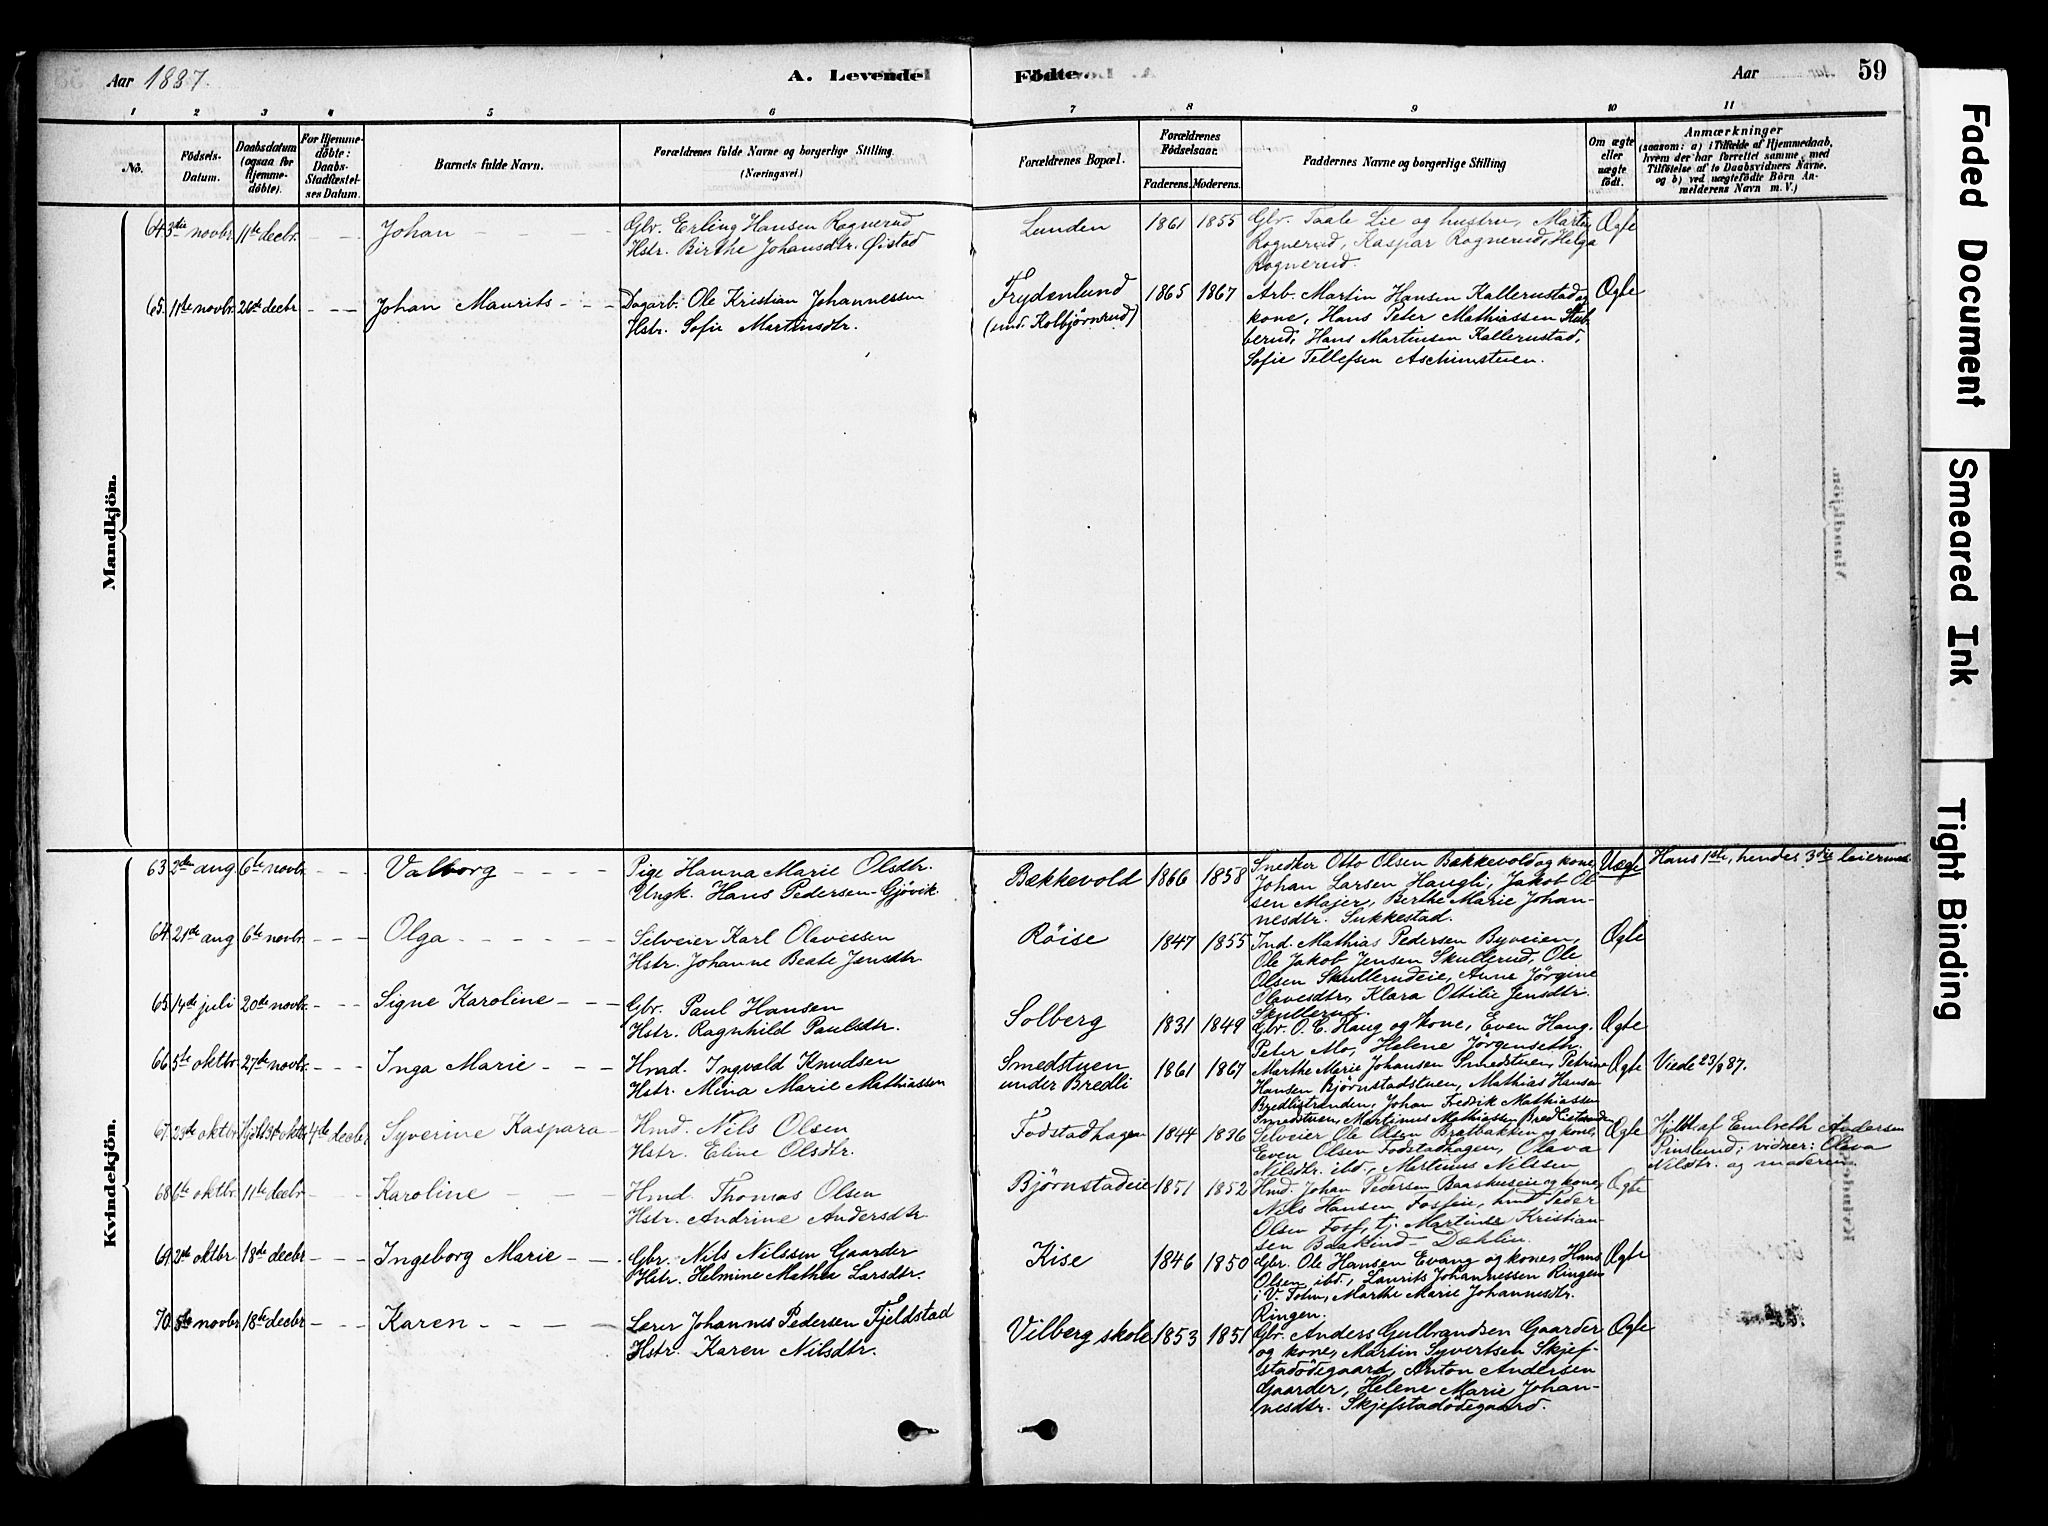 Aar 1887.
A. Levende
Födte.
Aar
59
1 2 3 4 5 6 7 8 9 10 11
No.
Födsels-
Datum.
Daabsdatum
(ogsaa för
Hjemme-
döbte).
For Hjemme-
döbte:
Daabs-
Stadfæstel-
ses Datum.
Barnets fulde Navn.
Forældrenes fulde Navne og borgerlige Stilling.
(Næringsvei.)
Forældrenes Bopæl.
Forældrenes
Födselsaar.
Faderens. Moderens.
Faddernes Navne og borgerlige Stilling
Om ægte
eller
uægte
födt.
Anmærkninger
(saasom: a) i Tilfælde af Hjemmedaab,
hvem der har forrettet samme, med
Tilföielse af to Daabsvidners Navne,
og b) ved uægtefödte Börn An-
melderens Navn m. V.)
Mandkjön.
64 3die novbr. 11te decbr. - - - Johan - - - -
Gbr. Erling Hansen Rognerud
Hstr. Birthe Johansdtr. Øistad
Lunden 1861 1855
Gbr. Taale Lie og hustru, Martin
Rognerud, Kaspar Rognerud, Helga
Rognerud.
Ægte
65. 11te novbr. 26de decbr - - - Johan Maurits - - -
Dagarb. Ole Kristian Johannessen
Hstr. Sofie Martinsdtr.
Frydenlund
(und. Kolbjörnrud)
1865 1867
Arb. Martin Hansen Kallerustad og
kone, Hans Peter Mathiassen Stub-
berud, Hans Martinsen Kallerustad,
Sofie Tellefsen Aschimstuen.
Ægte
Kvindekjön.
63 2den aug 6te novbr. - - - Valborg - - - -
Pige Hanna Marie Olsdtr.
Ungk. Hans Pedersen-Gjövik
Bækkevold 1866 1858
Snedker Otto Olsen Bækkevold og kone,
Johan Larsen Haugli, Jakob Ol-
sen Majer, Berthe Marie Johan-
nesdtr. Sukkestad.
Uægte
Hans 1ste, hendes 3die leiermaal
64 21de aug 6te novbr. - - - Olga - - - - -
Selveier Karl Olavessen
Hstr. Johanne Beate Jensdtr.
Röise 1847 1855
Ind. Mathias Pedersen Byveien,
Ole Jakob Jensen Skullerud, Ole
Olsen Skullerudeie, Anne Jörgine
Olavesdtr, Klara Ottilie Jensdtr.
Skullerud.
Ægte
65 14de juli 20de novbr. - - - Signe Karoline - - -
Gbr. Paul Hansen
Hstr. Ragnhild Paulsdtr.
Solberg 1831 1849
Gbr. O. C. Haug og kone, Even Haug,
Peter Mo, Helene Jörgenseth.
Ægte
66 5te oktbr. 27de novbr. - - - Inga Marie - - -
Hmd. Ingvald Knudsen
Hstr. Mina Marie Mathiassen
Smedstuen
under Bredli
1861 1867
Marthe Marie Johansen Smedstuen, Petrine
Hansen Bjørnstadstuen, Mathias Hansen
Bredlistranden, Johan Fredrik Mathiassen
Smedstuen, Martinus Mathiassen Bredlistranden
Ægte
Viede 23/8 87.
67 23de oktbr. Hjdbt 31te oktbr. 4de decbr. Syverine Kaspara -
Hmd. Nils Olsen
Hstr. Eline Olsdtr.
Fodstadhagen 1844 1836
Selveier Ole Olsen Bratbakken og kone,
Even Olsen Fodstadhagen, Olava
Nilsdtr. ibd., Martinus Nilssen
Ægte
Hjdbt. af Embreth Andersen
Pinslund; vidner: Olava
Nilsdtr. og moderen
68 6te oktbr. 11te decbr. - - - Karoline - - -
Hmd. Thomas Olsen
Hstr. Andrine Andersdtr
Bjørnstadeie 1851 1852
Hmd. Johan Pedersen Baashuseie og kone,
Nils Hansen Fosseie, hmd Peder
Olsen Foss, tj. Martinus Kristian-
sen Baakind-Dæhlin.
Ægte
69 2de oktbr 18de decbr - - - Ingeborg Marie - -
Gbr. Nils Nilssen Gaarder
Hstr. Helmine Mathea Larsdtr.
Kise 1846 1850
Gbr. Ole Hansen Evang og kone, Hans
Olsen ibd., Laurits Johannessen Ringen
i V. Toten, Marthe Marie Johannesdtr.
Ringen.
Ægte
70 8de novbr. 18de decbr - - - Karen - - - -
Lærer Johannes Pedersen Fjeldstad
Hstr. Karen Nilsdtr.
Vilberg skole 1853 1851
Gbr. Anders Gulbrandsen Gaarder
og kone, Martin Syvertsen Skjef-
stadödegaard, Anton Andersen
Gaarder, Helene Marie Johan-
nesdtr. Skjefstadödegaard.
Ægte
Faded Document
Smeared Ink
Tight Binding